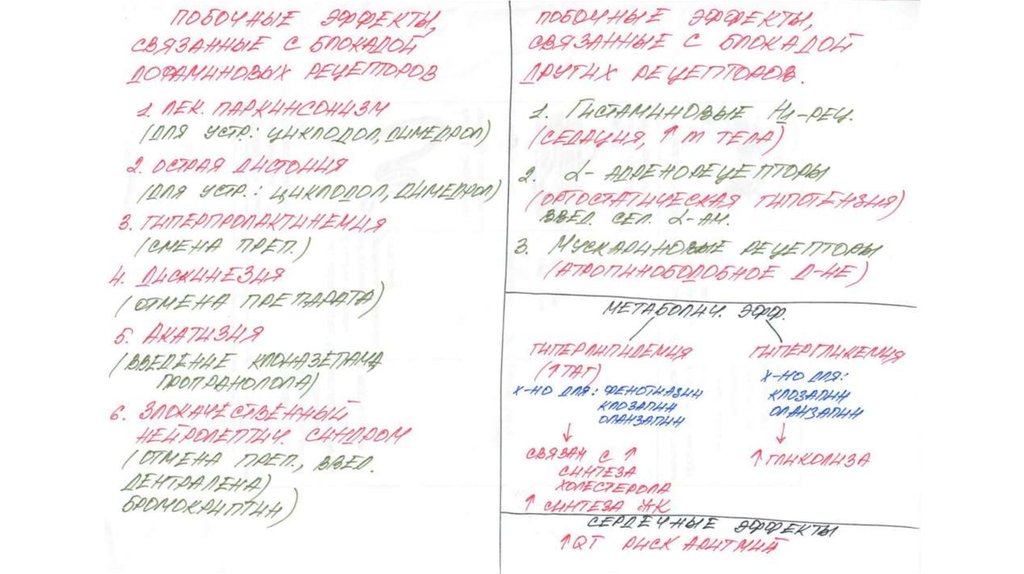 ПОБОЧНЫЕ ЭФФЕКТЫ,
СВЯЗАННЫЕ С БЛОКАДОЙ
ДОФАМИНОВЫХ РЕЦЕПТОРОВ
1. ЛЕК. ПАРКИНСОНИЗМ
(ДЛЯ УСТР.: ЦИКЛОДОЛ, ДИМЕДРОЛ)
2. ОСТРАЯ ДИСТОНИЯ
(ДЛЯ УСТР.: ЦИКЛОДОЛ, ДИМЕДРОЛ)
3. ГИПЕРПРОЛАКТИНЕМИЯ
(СМЕНА ПРЕП.)
4. ДИСКИНЕЗИЯ
(ОТМЕНА ПРЕПАРАТА)
5. АКАТИЗИЯ
(ВВЕДЕНИЕ КЛОНАЗЕПАМА,
ПРОПРАНОЛОЛА)
6. ЗЛОКАЧЕСТВЕННЫЙ
НЕЙРОЛЕПТИЧ. СИНДРОМ
(ОТМЕНА ПРЕП., ВВЕД.
ДЕНТРАЛЕНА)
БРОМОКРИПТИН)
ПОБОЧНЫЕ ЭФФЕКТЫ,
СВЯЗАННЫЕ С БЛОКАДОЙ
ДРУГИХ РЕЦЕПТОРОВ.
1. ГИСТАМИНОВЫЕ H1-РЕЦ.
(СЕДАЦИЯ, ↑ m ТЕЛА)
2. α- АДРЕНОРЕЦЕПТОРЫ
(ОРТОСТАТИЧЕСКАЯ ГИПОТЕНЗИЯ)
ВВЕД. СЕЛ. α-АМ.
3. МУСКАРИНОВЫЕ РЕЦЕПТОРЫ
(АТРОПИНОБОДОБНОЕ Д-ИЕ)
МЕТАБОЛИЧ. ЭФФ.
ГИПЕРЛИПИДЕМИЯ
(↑ТАГ)
Х-НО ДЛЯ: ФЕНОТИАЗИН
КЛОЗАПИН
ОЛАНЗАПИН
↓
СВЯЗАН С ↑
СИНТЕЗА
ХОЛЕСТЕРОЛА
↑ СИНТЕЗА ЖК
ГИПЕРГЛИКЕМИЯ
Х-НО ДЛЯ:
КЛОЗАПИН
ОЛАНЗАПИН
↓
↑ ГЛИКОЛИЗА
СЕРДЕЧНЫЕ ЭФФЕКТЫ
↑QT РИСК АРИТМИЙ